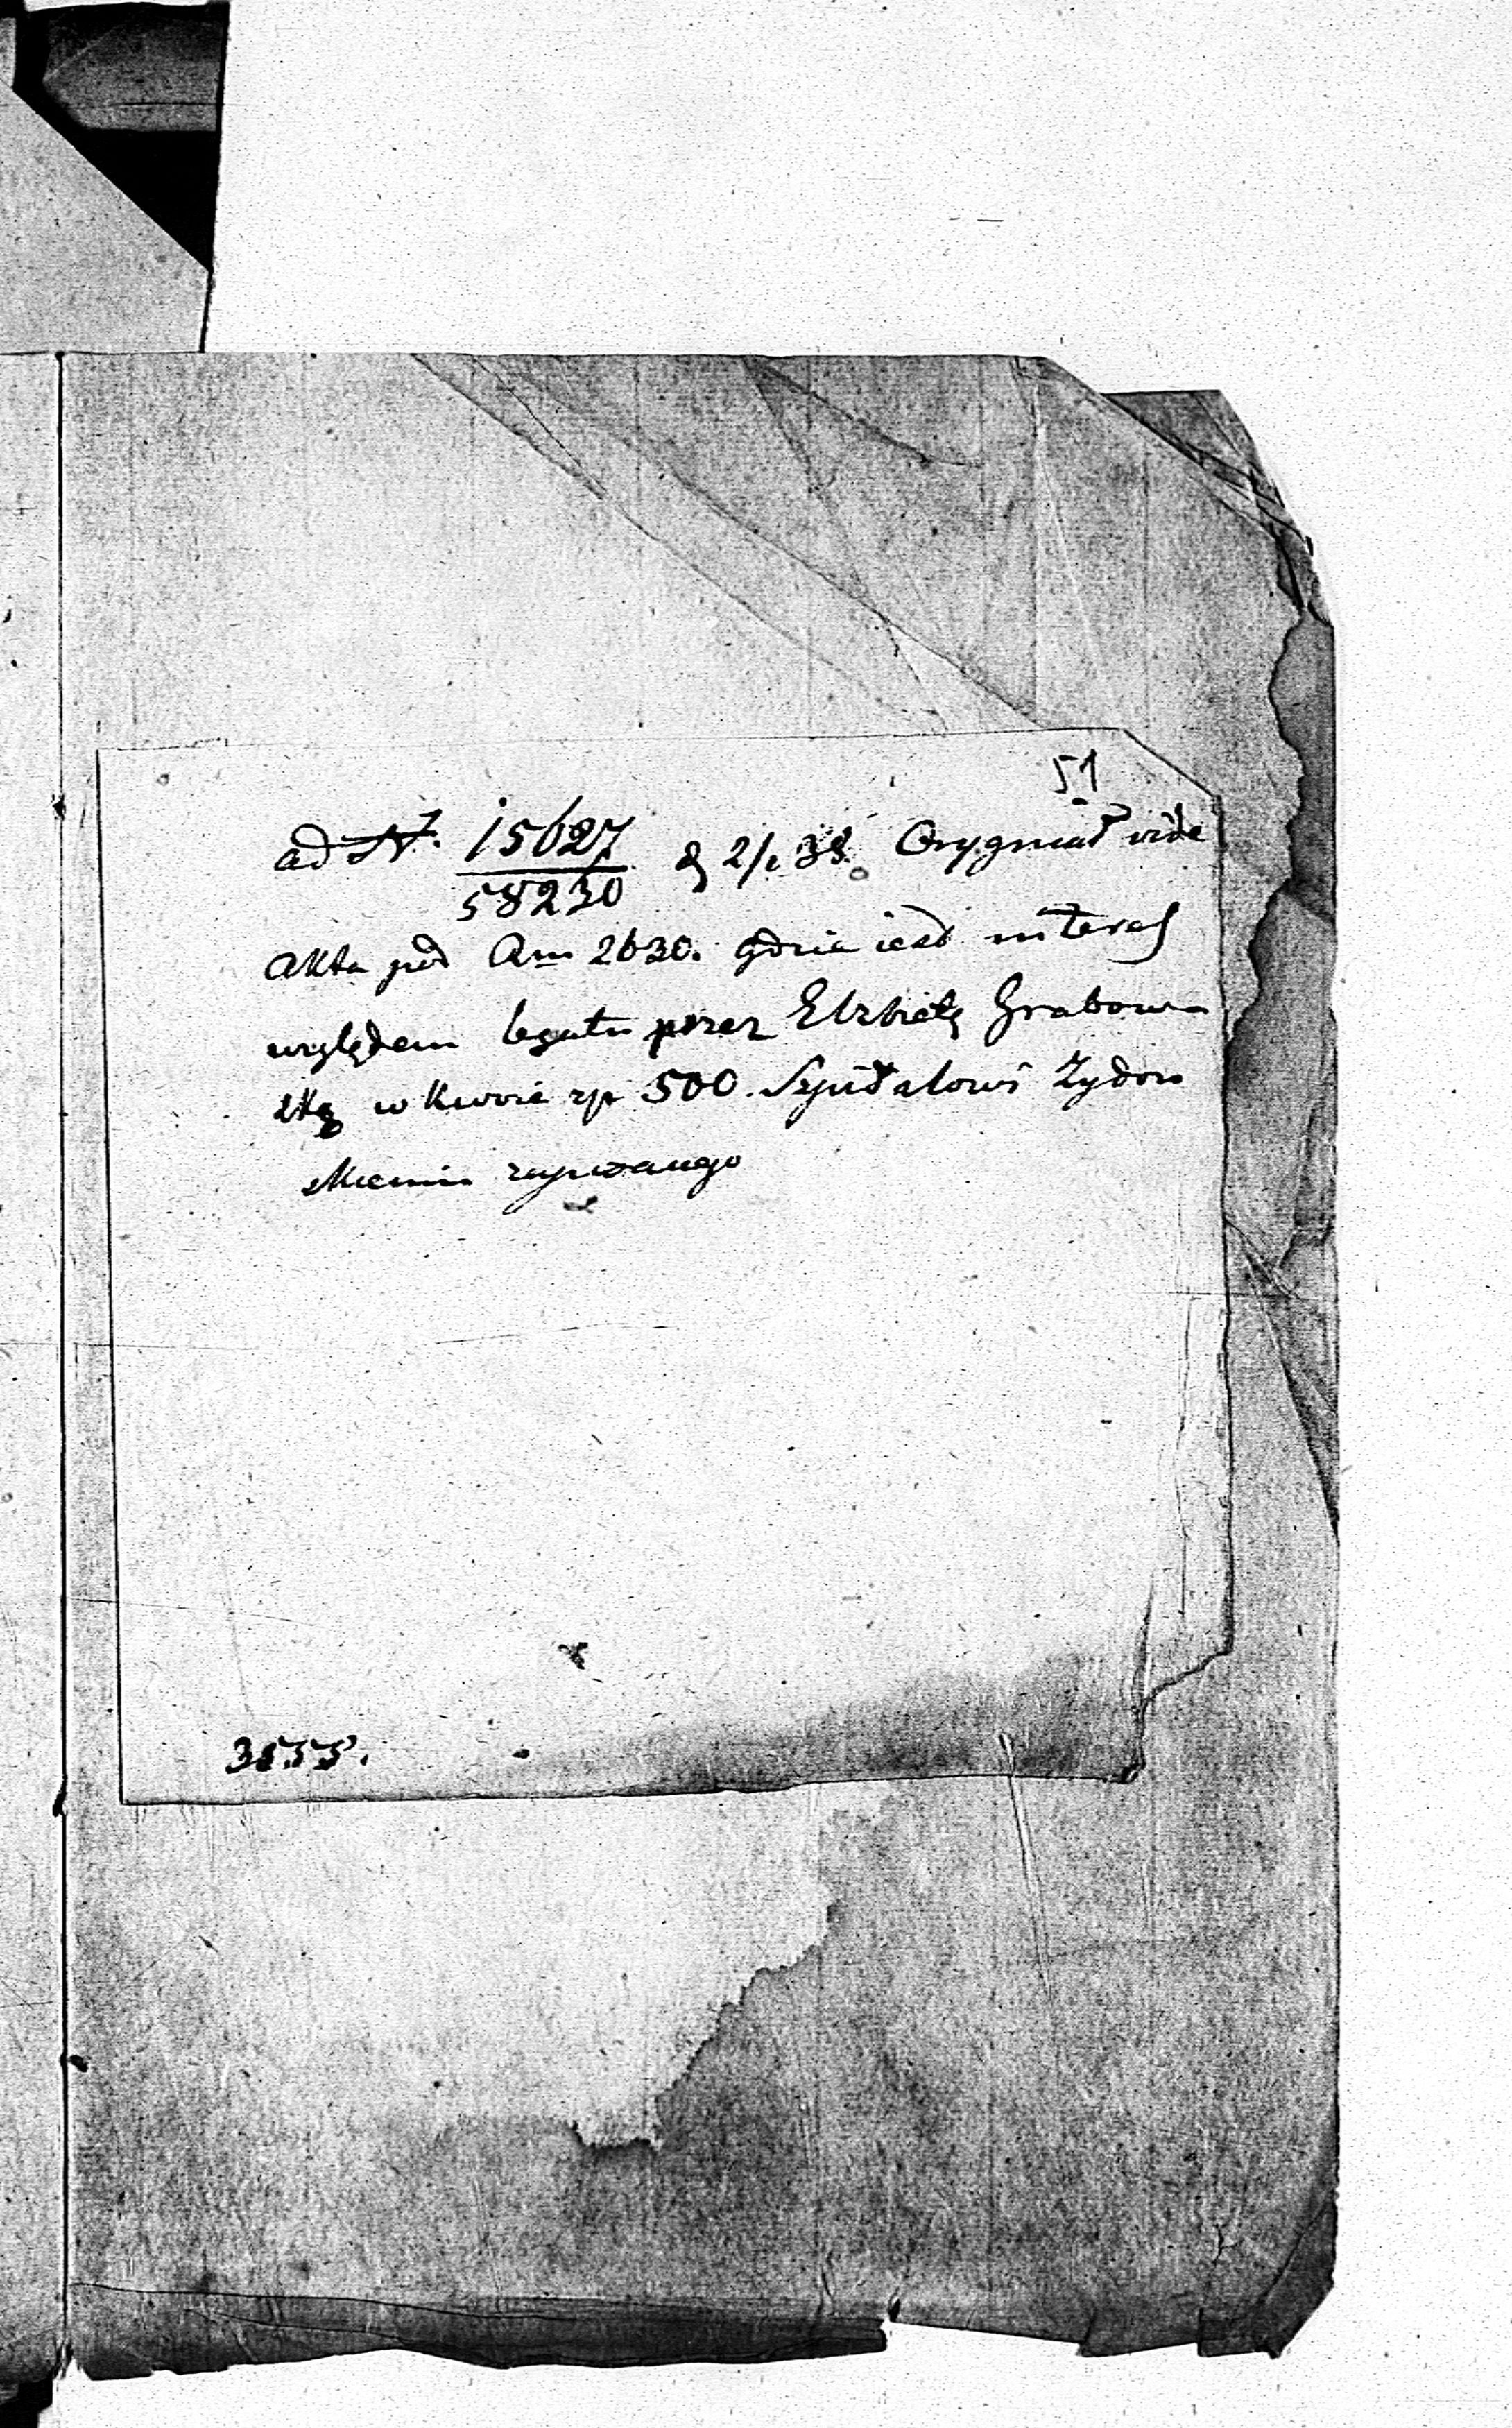 51
ad N. 15627/58230 d 2/1 38. Oryginał vide
Akta pod 2630. gdzie iest interes
względem legatu przez Elzbietę Grabow
ską w kwocie zp 500. Szpitalowi Zydow
skiemu zapisanego
3855.